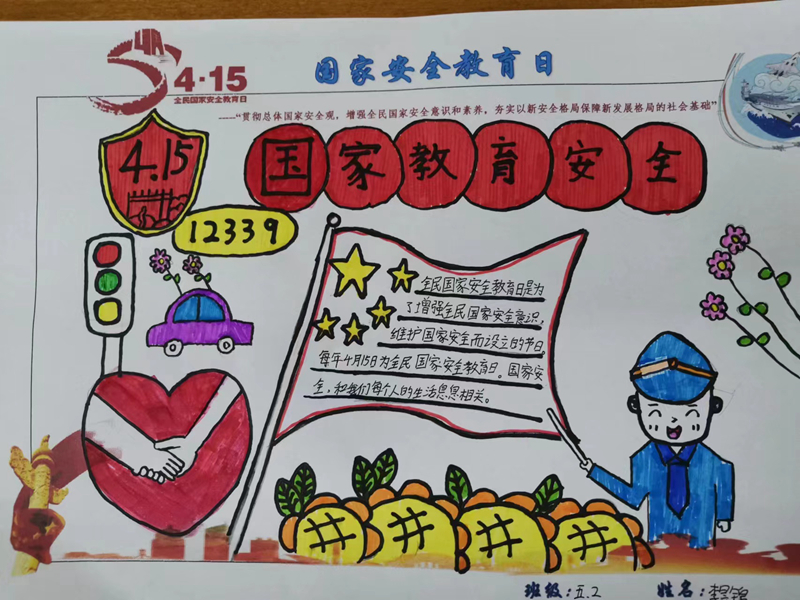 4·15
全民国家安全教育日
国家安全教育日
----“贯彻总体国家安全观，增强全民国家安全意识和素养，夯实以新安全格局保障新发展格局的社会基础”
4.15
国家教育安全
12339
全民国家安全教育日是为
了增强全民国家安全意识，
维护国家安全而设立的节日。
每年4月15日为全民国家安全教育日。国家安
全，和我们每个人的生活息息相关。
班级：五.2 姓名：